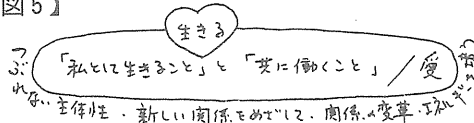 図5】
生きる
「私として生きること」と「共に働くこと」／愛
つぶれない主体性・新しい関係をめざして・関係の変革・エネルギー